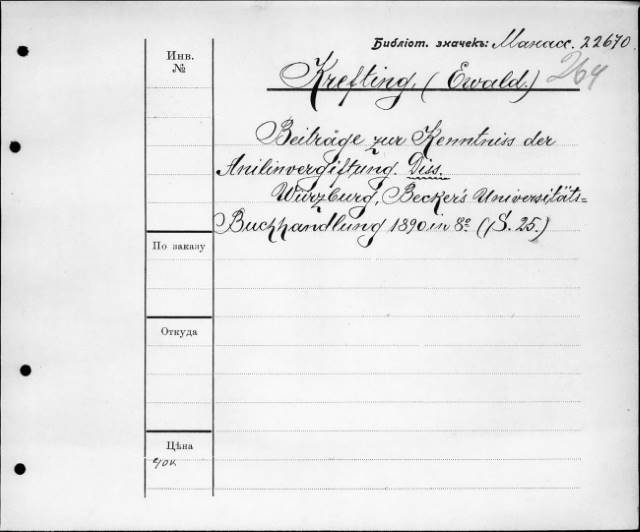 Библіот. значекъ: Манасс. 22670.
Инв.
№
Krefting, (Ewald.) 264
Beiträge zur Kenntniss der
Anilinvergiftung. Diss.
Würzburg, Becker's Universitäts=
Buchhandlung 1890 in 8º (S. 25.)
По заказу
Откуда
Цѣна